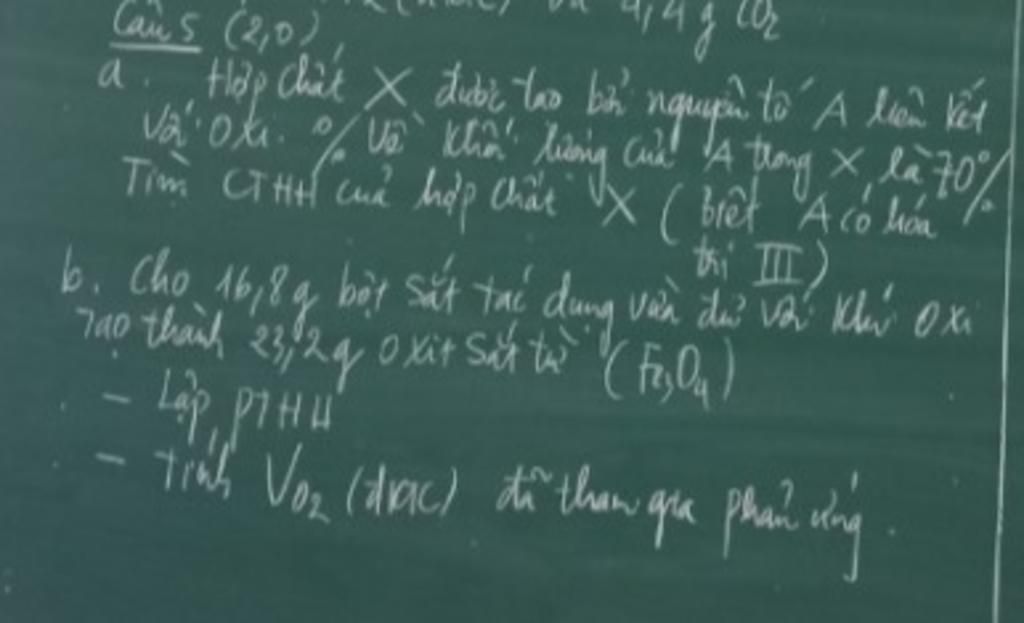 (đktc) và 4,4 g CO2
Câu 5 (2,0)
a. Hợp chất X được tạo bởi nguyên tố A liên kết
với Oxi. % về khối lượng của A trong X là 70%
Tìm CTHH của hợp chất X (biết A có hóa
trị III)
b. Cho 16,8g bột sắt tác dụng vừa đủ với khí Oxi
Tạo thành 23,2g Oxit sắt từ (Fe3O4)
- Lập PTHH
- Tính VO2 (đktc) đã tham gia phản ứng.